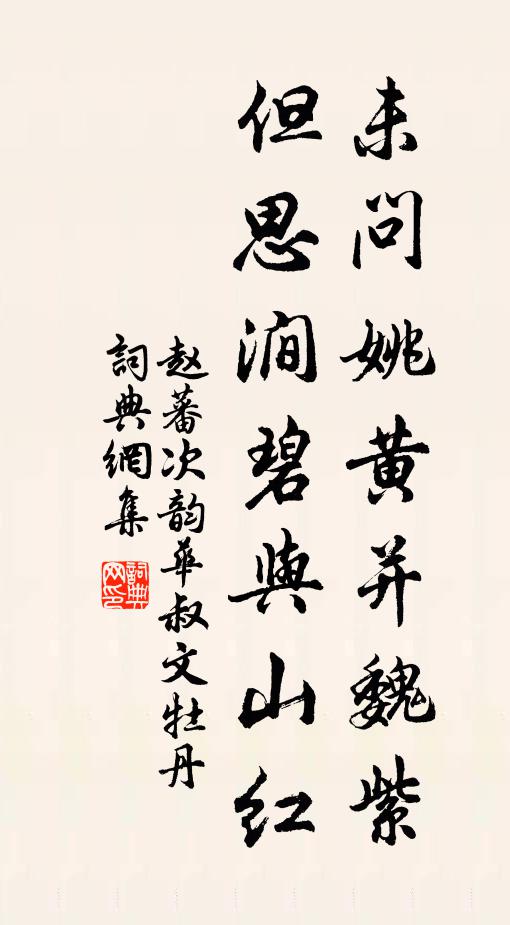 未问姚黄并魏紫
但思涧碧與山红
赵蕃次韵華叔文牡丹
詞典網集
詞典网印